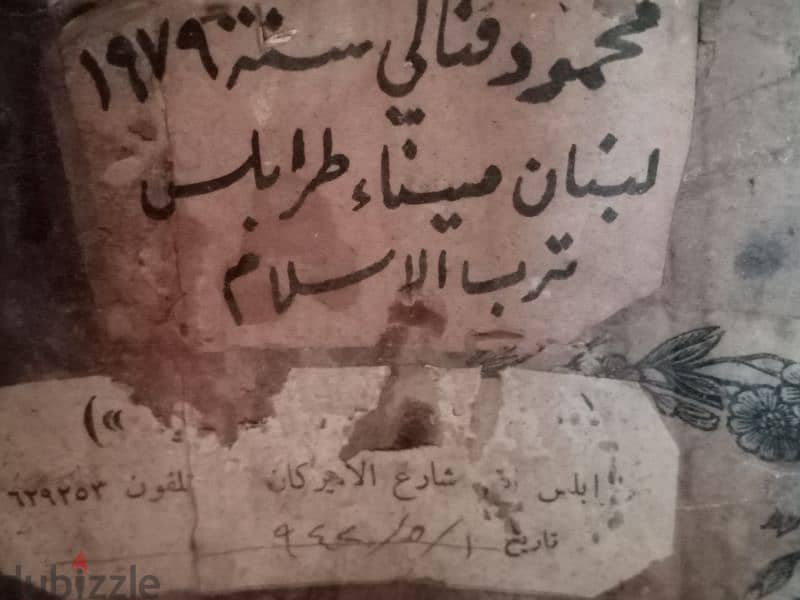 محمود فتالي سنة ١٩٧٩
لبنان ميناء طرابلس
ترب الاسلام
«)
ابلس شارع الاميركان تلفون ٦٢٩٢٥٣
تاريخ ١/٥/٩٤٢
dubizzle